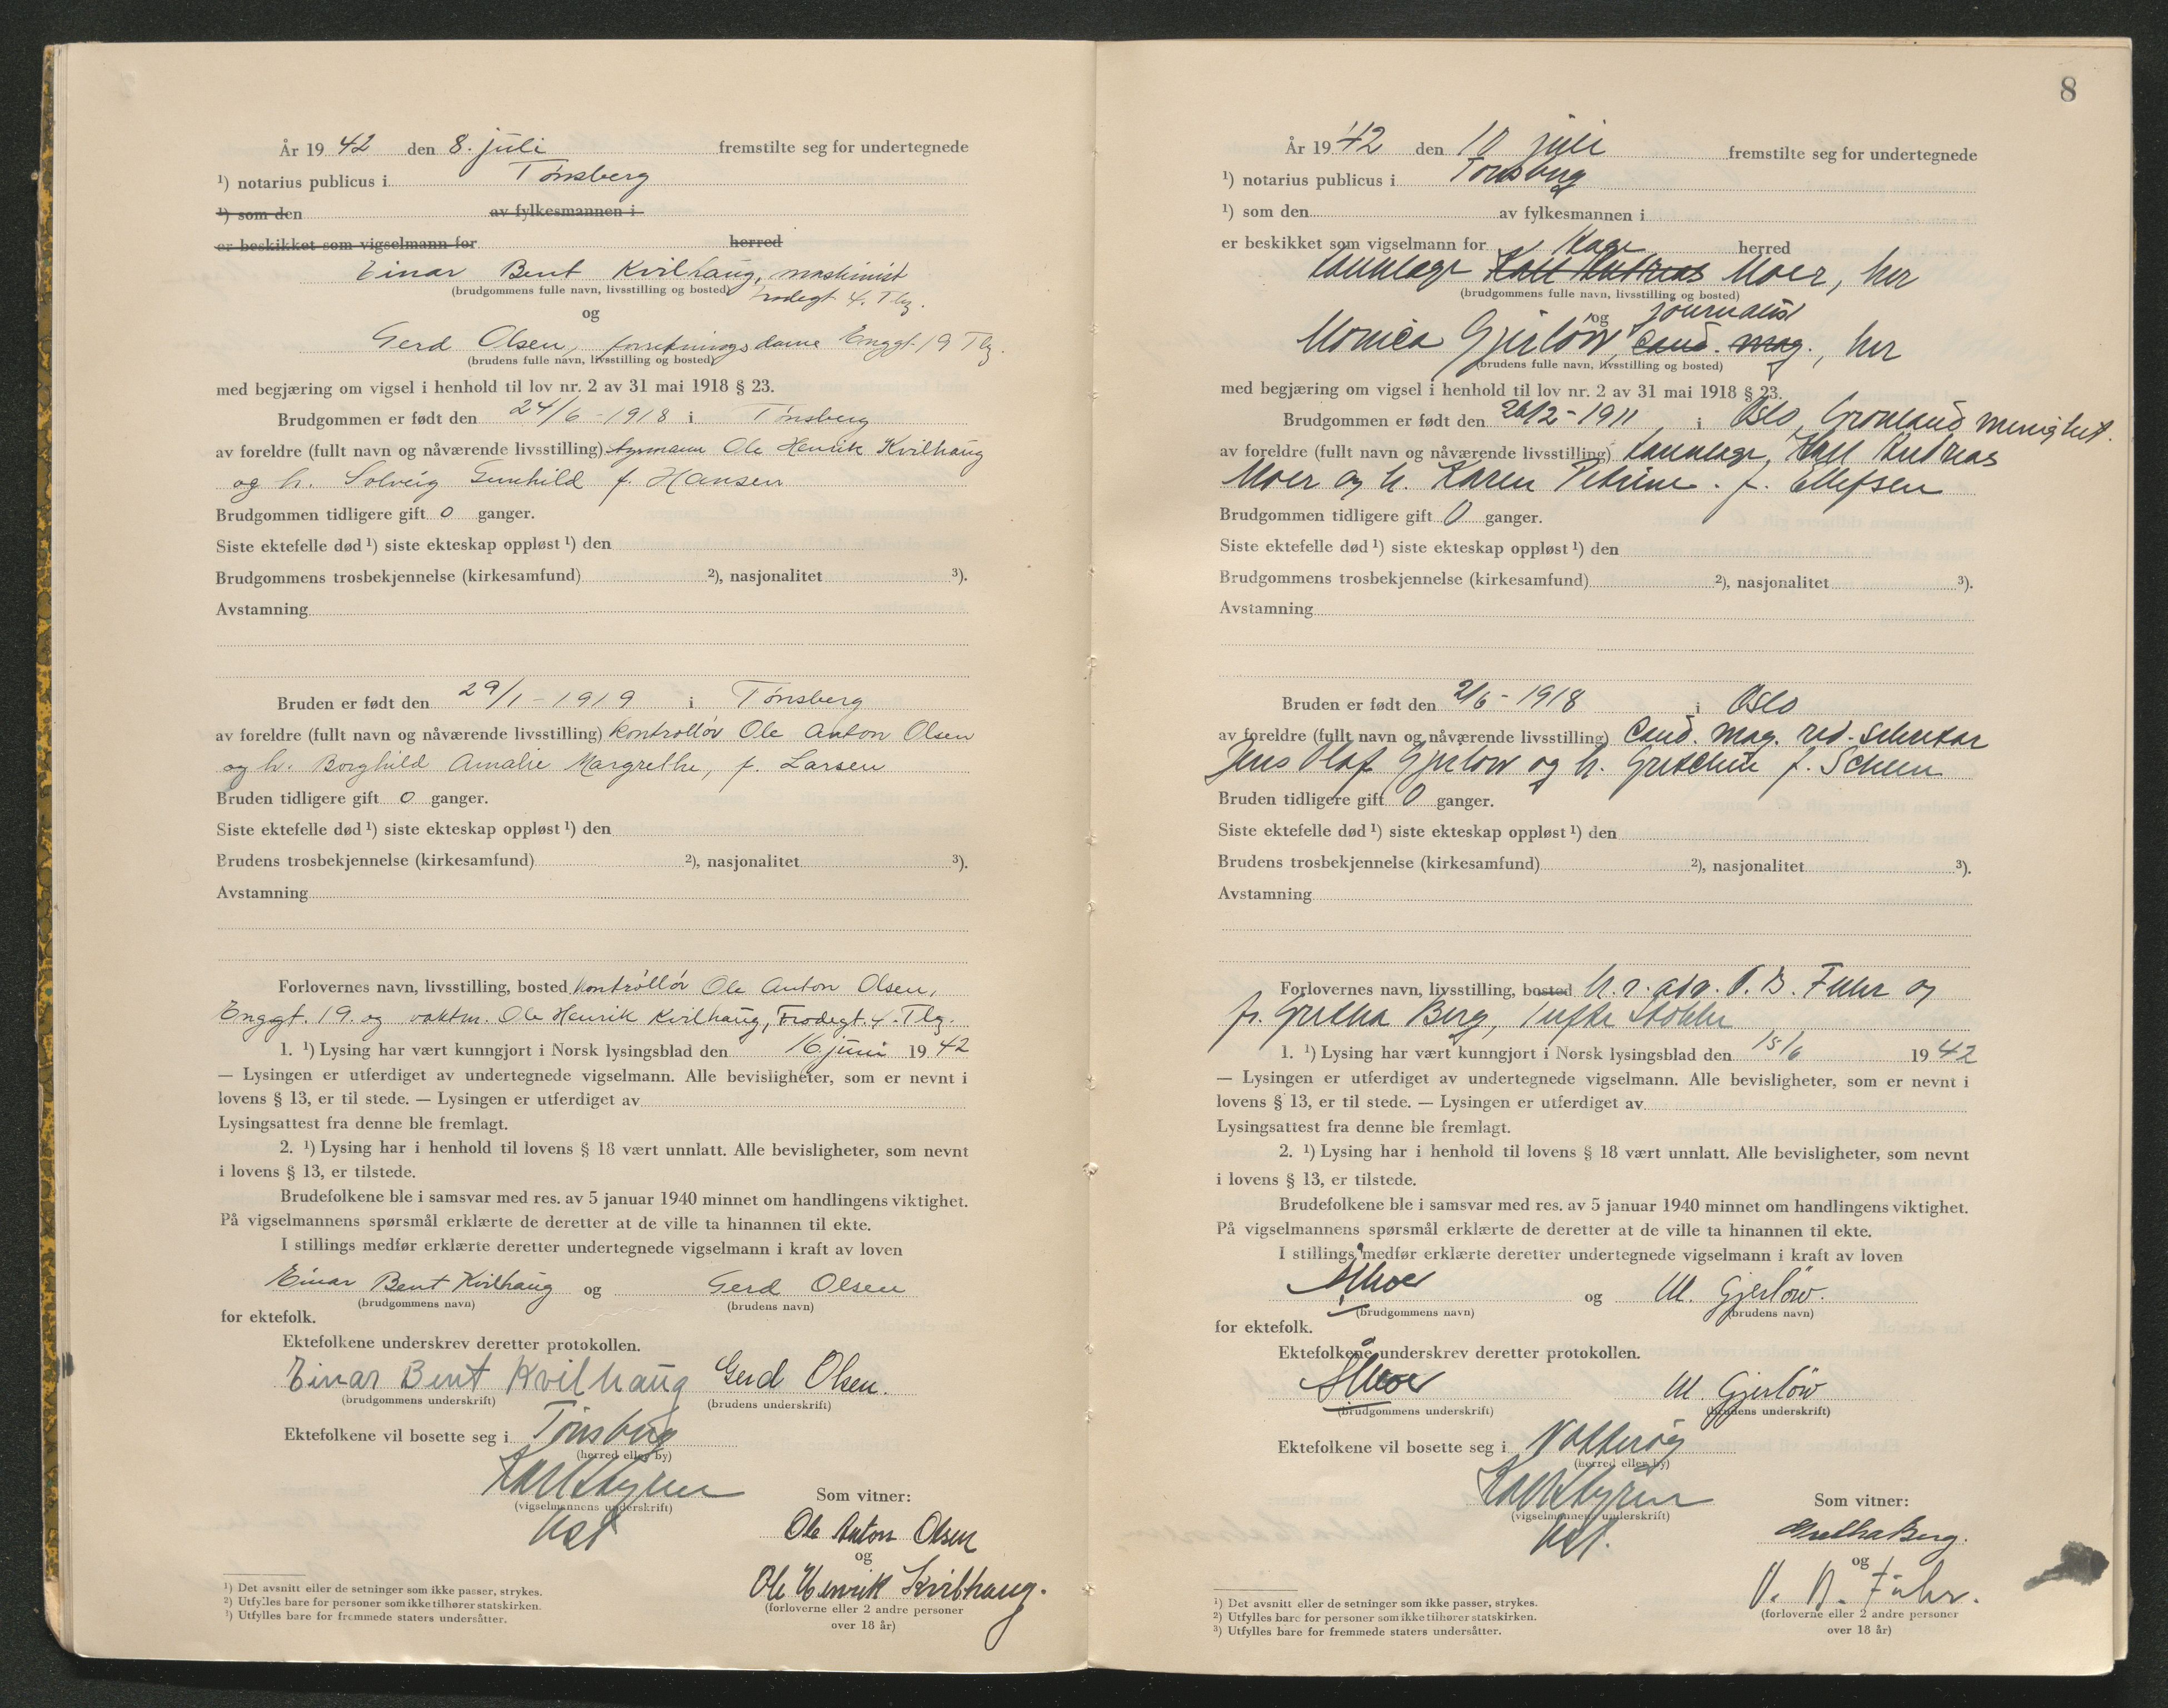 År 19 42 den 8. juli fremstilte seg for undertegnede
¹) notarius publicus i Tønsberg
¹) som den av fylkesmannen i
er beskikket som vigselmann for herred
Einar Bent Kvilhaug, maskinist
(brudgommens fulle navn, livsstilling og bosted) Frodegt 4. Tbg.
og
Gerd Olsen, forretningsdame Enggt. 19 Tbg.
(brudens fulle navn, livsstilling og bosted)
med begjæring om vigsel i henhold til lov nr. 2 av 31 mai 1918 § 23.
Brudgommen er født den 24/6 - 1918 i Tønsberg
av foreldre (fullt navn og nåværende livsstilling) Ole Henrik Kvilhaug
og h. Solveig Gunhild f. Hansen
Brudgommen tidligere gift 0 ganger.
Siste ektefelle død ¹) siste ekteskap oppløst ¹) den
Brudgommens trosbekjennelse (kirkesamfund) ²), nasjonalitet ³).
Avstamning
Bruden er født den 29/1 - 1919 i Tønsberg
av foreldre (fullt navn og nåværende livsstilling) Kontrollør Ole Anton Olsen
og h. Borghild Amalie Margrethe, f. Larsen
Bruden tidligere gift 0 ganger.
Siste ektefelle død ¹) siste ekteskap oppløst ¹) den
Brudens trosbekjennelse (kirkesamfund) ²), nasjonalitet ³).
Avstamning
Forlovernes navn, livsstilling, bosted kontrollør Ole Anton Olsen,
Enggt. 19. og vaktm. Ole Henrik Kvilhaug, Frodegt. 4. Tbg.
1. ¹) Lysing har vært kunngjort i Norsk lysingsblad den 16. juni 19 42
— Lysingen er utferdiget av undertegnede vigselmann. Alle bevisligheter, som er nevnt i
lovens § 13, er til stede. — Lysingen er utferdiget av
Lysingsattest fra denne ble fremlagt.
2. ¹) Lysing har i henhold til lovens § 18 vært unnlatt. Alle bevisligheter, som nevnt
i lovens § 13, er tilstede.
Brudefolkene ble i samsvar med res. av 5 januar 1940 minnet om handlingens viktighet.
På vigselmannens spørsmål erklærte de deretter at de ville ta hinannen til ekte.
I stillings medfør erklærte deretter undertegnede vigselmann i kraft av loven
Einar Bent Kvilhaug og Gerd Olsen
(brudgommens navn) (brudens navn)
for ektefolk.
Ektefolkene underskrev deretter protokollen.
Einar Bent Kvilhaug Gerd Olsen.
(brudgommens underskrift) (brudens underskrift)
Ektefolkene vil bosette seg i Tønsberg
(herred eller by)
(vigselmannens underskrift)
Som vitner:
Ole Anton Olsen
og
Ole Henrik Kvilhaug.
(forloverne eller 2 andre personer
over 18 år)
¹) Det avsnitt eller de setninger som ikke passer, strykes.
²) Utfylles bare for personer som ikke tilhører statskirken.
³) Utfylles bare for fremmede staters undersåtter.
8
År 19 42 den 10 juli fremstilte seg for undertegnede
¹) notarius publicus i Tønsberg
¹) som den av fylkesmannen i
er beskikket som vigselmann for herred
tannlege Karl Andreas Moer, her
(brudgommens fulle navn, livsstilling og bosted)
og journalist
Monica Gjerløw, cand. mag., her
(brudens fulle navn, livsstilling og bosted)
med begjæring om vigsel i henhold til lov nr. 2 av 31 mai 1918 § 23.
Brudgommen er født den 26/2 - 1911 i Oslo, Grønland menighet.
av foreldre (fullt navn og nåværende livsstilling) tannlege, Karl Andreas
Moer og h. Karen Petrine. f. Ellefsen
Brudgommen tidligere gift 0 ganger.
Siste ektefelle død ¹) siste ekteskap oppløst ¹) den
Brudgommens trosbekjennelse (kirkesamfund) ²), nasjonalitet ³).
Avstamning
Bruden er født den 2/6 - 1918 i Oslo
av foreldre (fullt navn og nåværende livsstilling) Cand. mag. red. sekretær
Jens Olaf Gjerløw og h. Gretchen f. Scheen
Bruden tidligere gift 0 ganger.
Siste ektefelle død ¹) siste ekteskap oppløst ¹) den
Brudens trosbekjennelse (kirkesamfund) ²), nasjonalitet ³).
Avstamning
Forlovernes navn, livsstilling, bosted h. r. adv. B. Fuhr og
fr. Gretha Berg, Tufte Stokke
1. ¹) Lysing har vært kunngjort i Norsk lysingsblad den 15/6 19 42
— Lysingen er utferdiget av undertegnede vigselmann. Alle bevisligheter, som er nevnt i
lovens § 13, er til stede. — Lysingen er utferdiget av
Lysingsattest fra denne ble fremlagt.
2. ¹) Lysing har i henhold til lovens § 18 vært unnlatt. Alle bevisligheter, som nevnt
i lovens § 13, er tilstede.
Brudefolkene ble i samsvar med res. av 5 januar 1940 minnet om handlingens viktighet.
På vigselmannens spørsmål erklærte de deretter at de ville ta hinannen til ekte.
I stillings medfør erklærte deretter undertegnede vigselmann i kraft av loven
Moer og M. Gjerløw.
(brudgommens navn) (brudens navn)
for ektefolk.
Ektefolkene underskrev deretter protokollen.
Moer M. Gjerløw
(brudgommens underskrift) (brudens underskrift)
Ektefolkene vil bosette seg i Nøtterøy
(herred eller by)
(vigselmannens underskrift)
Som vitner:
Gretha Berg.
og
B. Fuhr.
(forloverne eller 2 andre personer
over 18 år)
¹) Det avsnitt eller de setninger som ikke passer, strykes.
²) Utfylles bare for personer som ikke tilhører statskirken.
³) Utfylles bare for fremmede staters undersåtter.